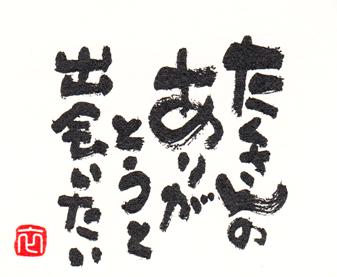 たくさんの
ありが
とうと
出会いたい